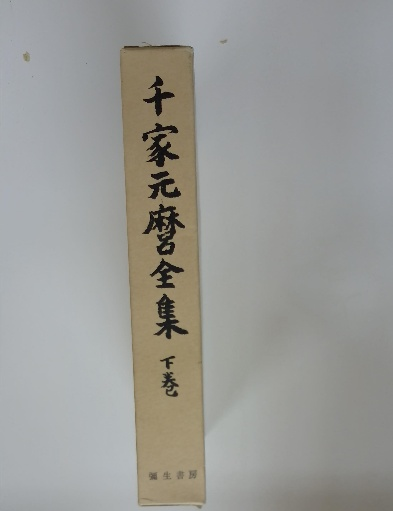 千家元麿全集
下巻
彌生書房